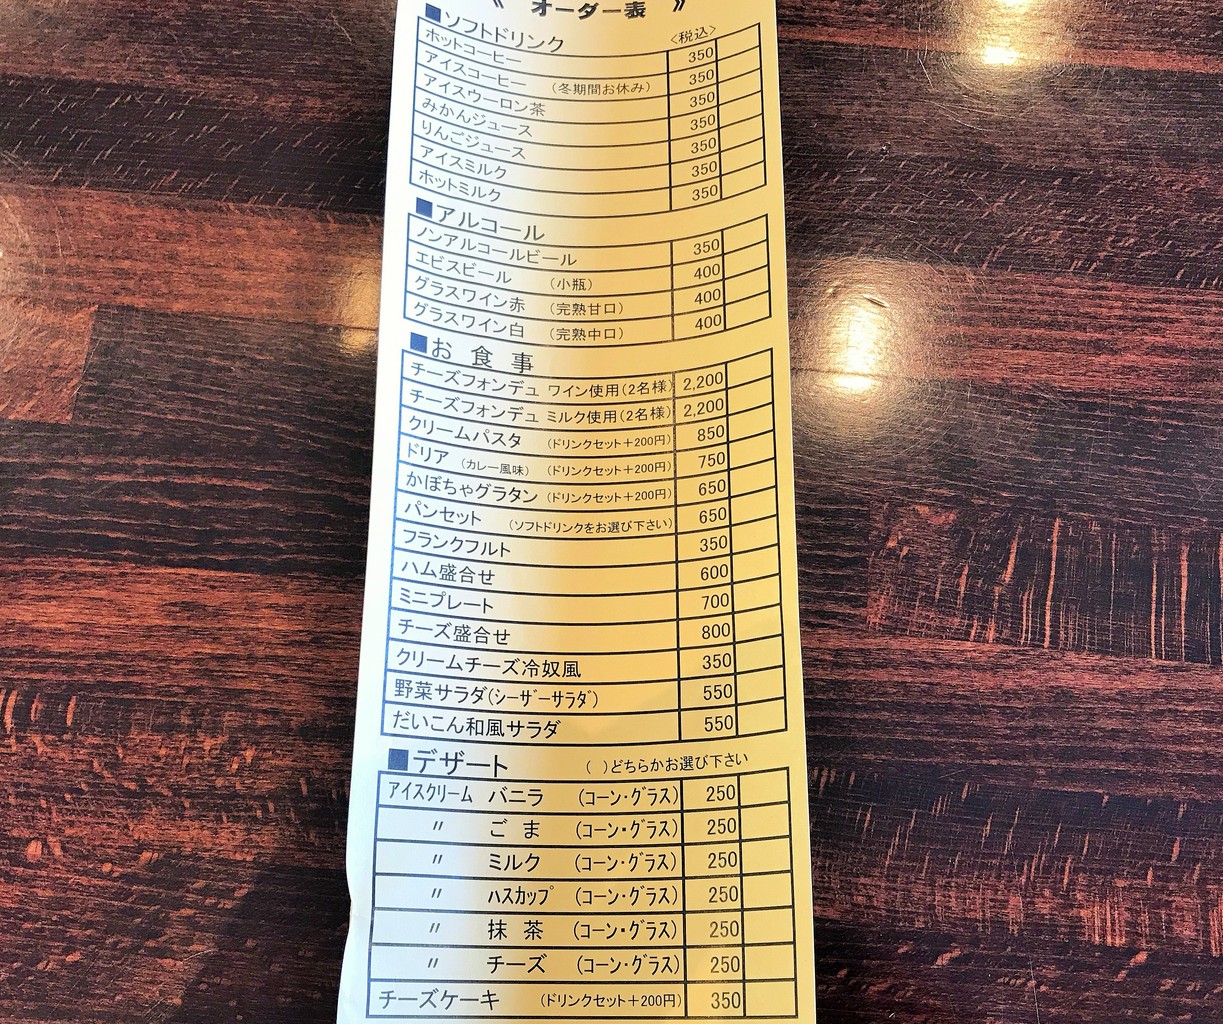 《 オーダー表 》
■ソフトドリンク 〈税込〉
ホットコーヒー 350
アイスコーヒー (冬期間お休み) 350
アイスウーロン茶 350
みかんジュース 350
りんごジュース 350
アイスミルク 350
ホットミルク 350
■アルコール
ノンアルコールビール 350
エビスビール (小瓶) 400
グラスワイン赤 (完熟甘口) 400
グラスワイン白 (完熟中口) 400
■お食事
チーズフォンデュ ワイン使用(2名様) 2,200
チーズフォンデュ ミルク使用(2名様) 2,200
クリームパスタ (ドリンクセット+200円) 850
ドリア (カレー風味) (ドリンクセット+200円) 750
かぼちゃグラタン (ドリンクセット+200円) 650
パンセット (ソフトドリンクをお選び下さい) 650
フランクフルト 350
ハム盛合せ 600
ミニプレート 700
チーズ盛合せ 800
クリームチーズ冷奴風 350
野菜サラダ(シーザーサラダ) 550
だいこん和風サラダ 550
■デザート ( )どちらかお選び下さい
アイスクリーム バニラ (コーン・グラス) 250
〃 ごま (コーン・グラス) 250
〃 ミルク (コーン・グラス) 250
〃 ハスカップ (コーン・グラス) 250
〃 抹茶 (コーン・グラス) 250
〃 チーズ (コーン・グラス) 250
チーズケーキ (ドリンクセット+200円) 350